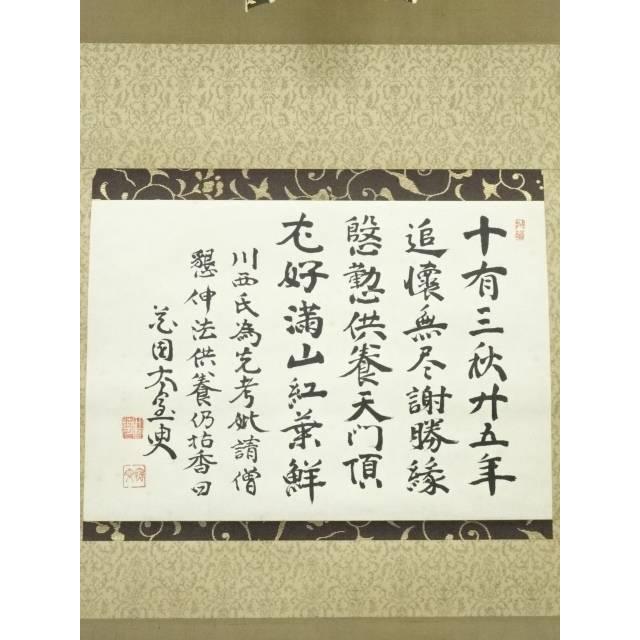 十有三秋廿五年
追懷無尽謝勝緣
慇懃供養天門頂
尤好滿山紅葉鮮
川西氏為先考妣請僧
懇伸法供養仍拈香曰